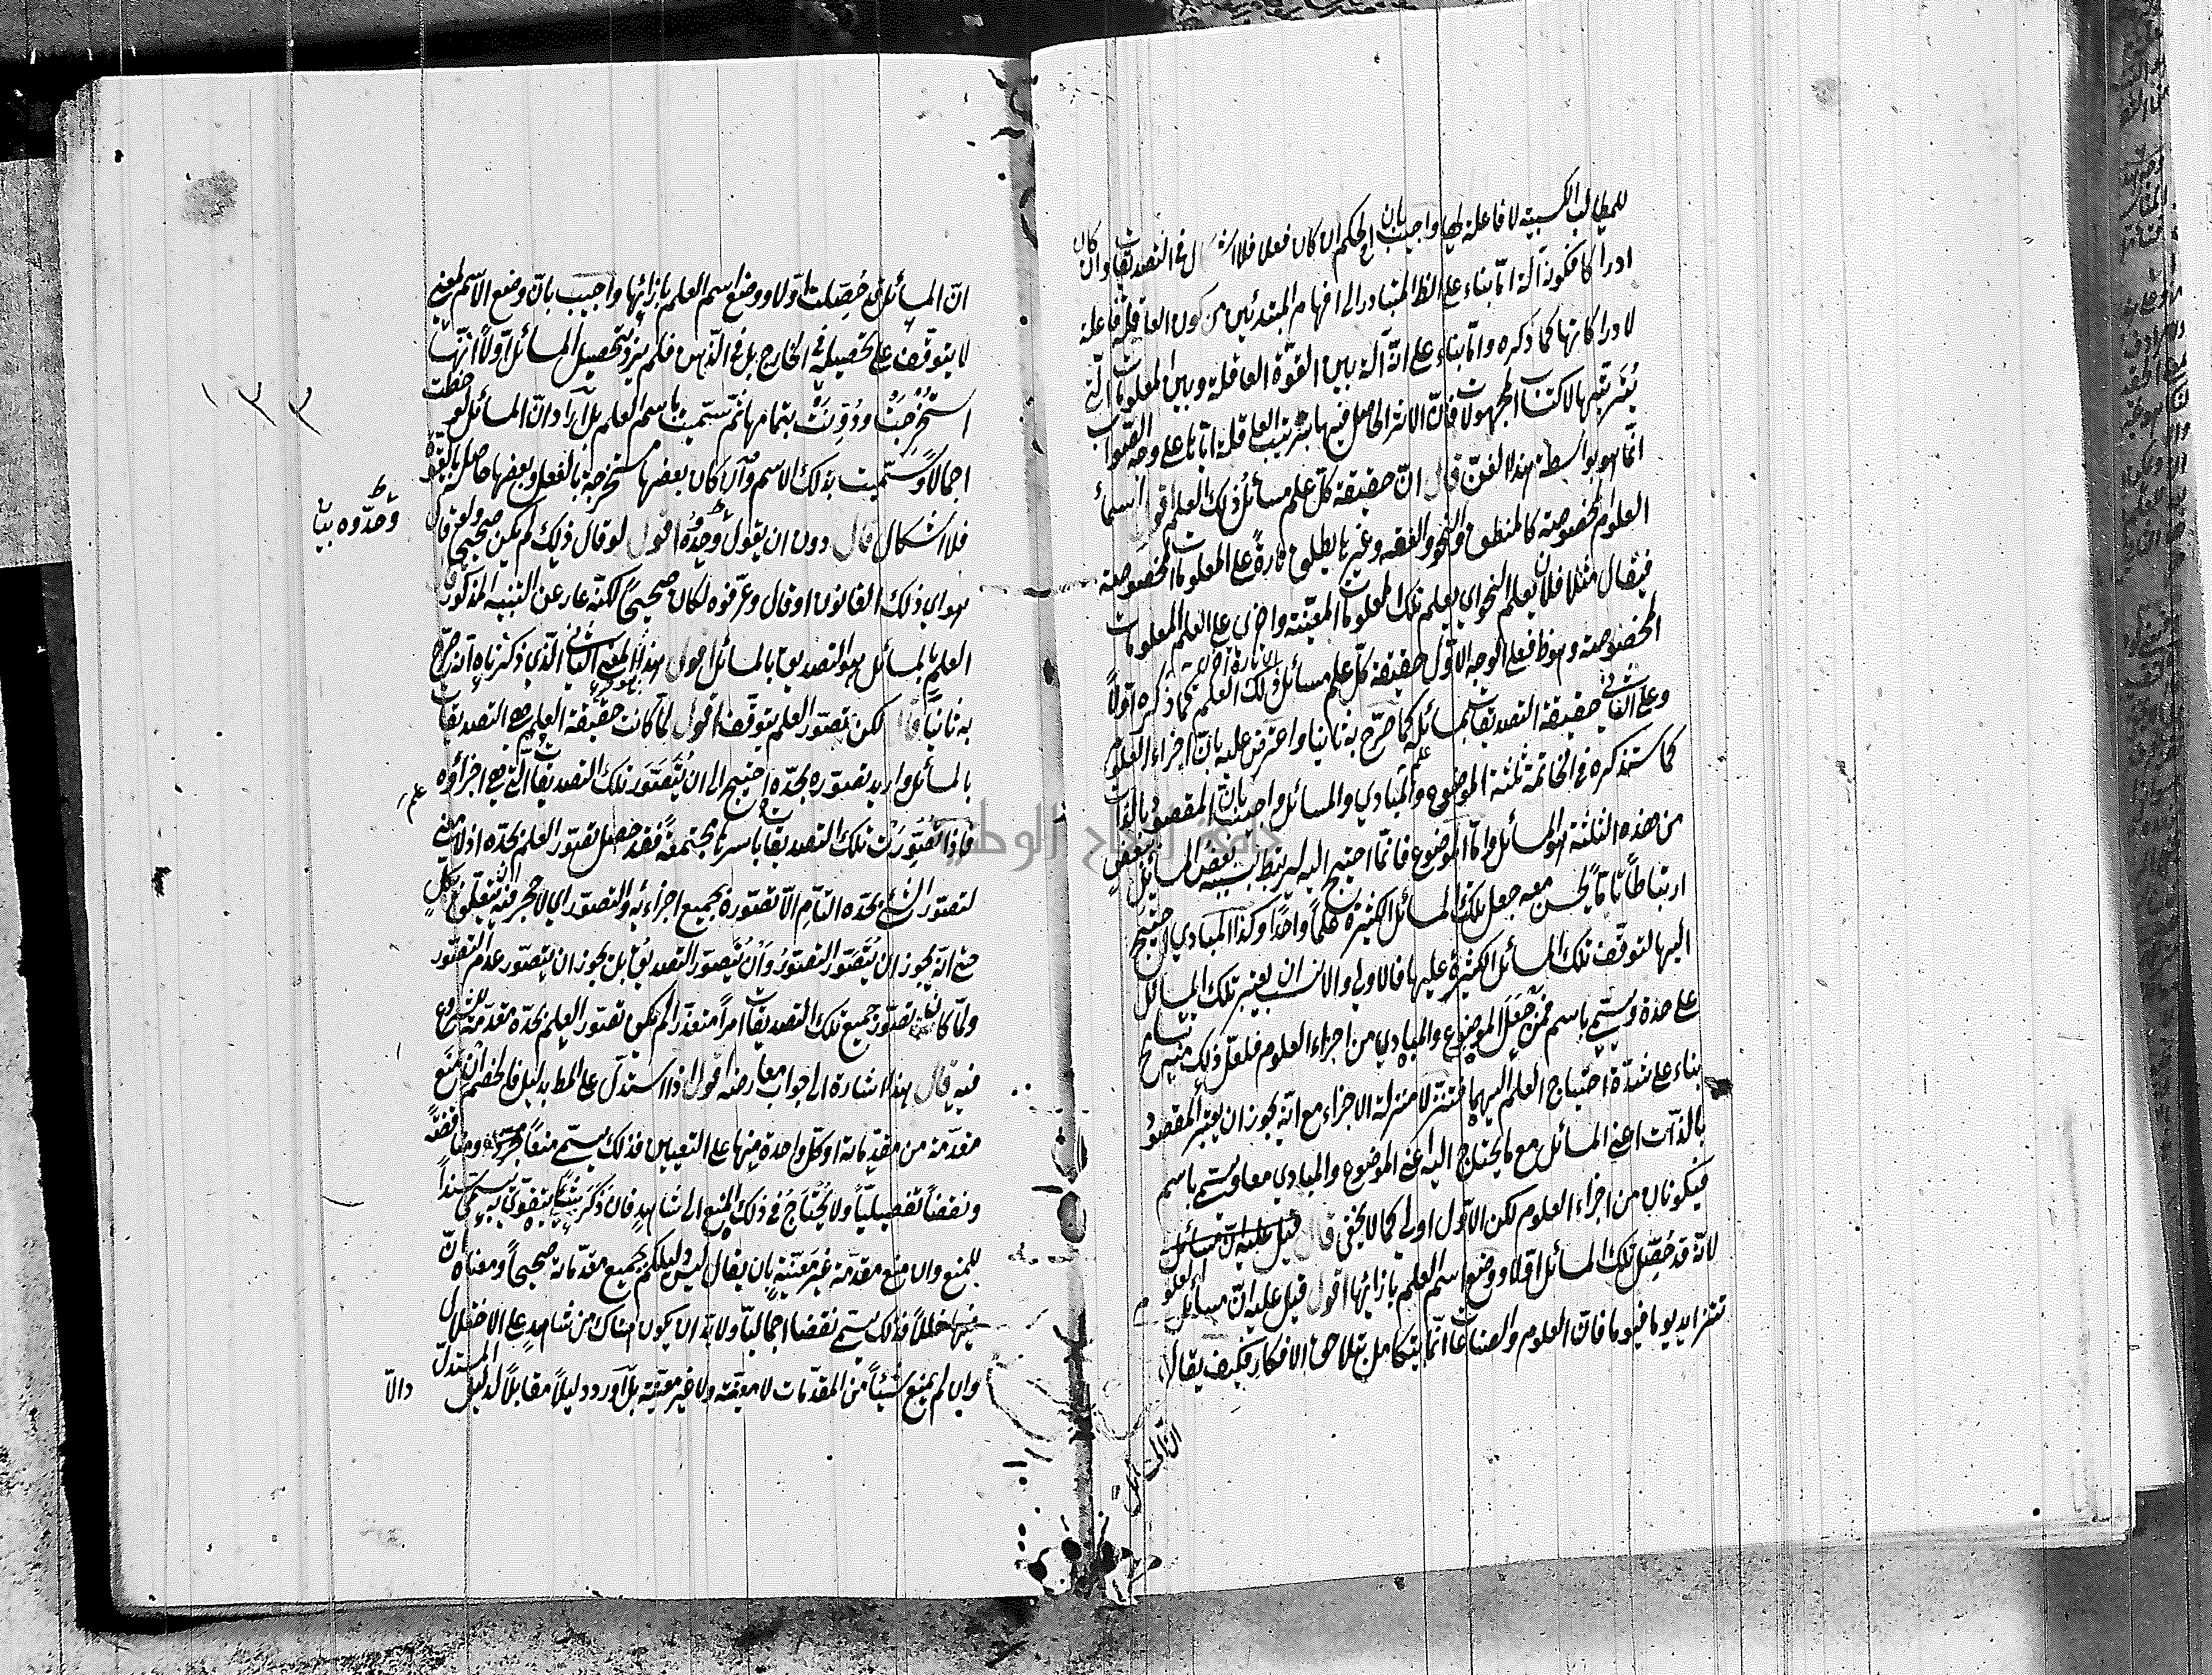 للمطالب الكسبية لا فاعلة لها واجيب بان الحكم ان كان فعلا فلا اشكال في التصديقات وان كان
ادراكا فكونه آلة اما بناء على الظ المتبادر الى افهام المبتدئين من كون العاقلة فاعلة
لادراكاتها كما ذكره واما بناء على انه آلة بين القوة العاقلة وبين المعلومات التي
يترتبها لاكتساب المجهولات فان الاثر الحاصل فيها بترتيب العاقلة اياها على وجه الصواب
انما هو بواسطة هذا الفن قال ان حقيقة كل علم مسائل ذلك العلم اقول اسماء
العلوم المخصوصة كالمنطق والنحو والفقه وغيرها يطلق تارة على المعلومات المخصوصة
فيقال مثلا فلان يعلم النحو اي يعلم تلك المعلومات المعينة واخرى على العلم بالمعلومات
المخصوصة وهو ظ فعلى الوجه الاول حقيقة كل علم مسائل ذلك العلم كما ذكره اولا
وعلى الثاني حقيقة التصديقات بمسائله كما صرح به ثانيا واعترض عليه بان اجزاء العلوم
كما ستذكره في الخاتمة ثلثة الموضوع والمبادي والمسائل واجيب بان المقصود بالذات
من هذه الثلثة هو المسائل واما الموضوع فانما احتيج اليه ليرتبط بسببه بعض المسائل ببعض
ارتباطا تاما يحسن معه جعل تلك المسائل الكثيرة علما واحدا وكذا المبادي احتيج
اليها لتوقف تلك المسائل الكثيرة عليها فالاولى والانسب ان يعتبر تلك المسائل
على حدة ويسمى باسم فمن جعل الموضوع والمبادي من اجزاء العلوم فلعل ذلك منه تسامح
بناء على شدة احتياج العلم اليهما فتنزلا منزلة الاجزاء مع انه يجوز ان يعتبر المقصود
بالذات اعني المسائل مع ما يحتاج اليه اعني الموضوع والمبادي معا ويسمى باسم
فيكونان من اجزاء العلوم لكن الاول اولى كما لا يخفى قال قيل عليه ان مسائل
لانه قد حصل تلك المسائل اولا ووضع اسم العلم بازائها اقول قيل عليه ان مسائل العلوم
تتزايد يوما فيوما فان العلوم والصناعات انما يتكامل بتلاحق الافكار فكيف يقال
ان المسائل
ان المسائل قد حصلت اولا ووضع اسم العلم بازائها واجيب بان وضع الاسم لمعنى
لا يتوقف على تحصيله في الخارج بل في الذهن فلم يرد بتحصيل المسائل اولا انها
استخرجت ودونت بتمامها ثم سميت باسم العلم بل اراد ان المسائل لوحظت
اجمالا وسميت بذلك الاسم وان كان بعضها مستخرجة بالفعل وبعضها حاصلة بالقوة
فلا اشكال قال دون ان يقول وحدوه اقول لو قال ذلك لم يكن صحيحا ولو قال
هو اي ذلك القانون او قال وعرفوه لكان صحيحا لكنه عار عن التنبيه المذكور
العلم بالمسائل هو التصديق بالمسائل اقول هذا هو المعنى الثاني الذي ذكرناه انه صرح
به ثانيا قال لكن تصور العلم يتوقف اقول لما كانت حقيقة العلم هي التصديقات
بالمسائل واريد تصوره بحده احتيج الى ان يتصور تلك التصديقات التي هي اجزاؤه
فاذا تصورت تلك التصديقات باسرها مجتمعة فقد حصل تصور العلم بحده اذ لا معنى
لتصور الشئ بحده التام الا تصوره بجميع اجزائه والتصور اي لا حجر فيه يتعلق بكل
شئ حتى انه يجوز ان يتصور التصور وان يتصور التصديق بل يجوز ان يتصور عدم التصور
ولما كان تصور جميع تلك التصديقات امرا متعذرا لم يكن تصور العلم بحده مقدمة للشروع
فيه قال هذا اشارة الى جواب معارضة اقول اذا استدل على المط بدليل فالخصم ان منع
مقدمة من مقدماته او كل واحدة منها على التعيين فذلك يسمى منعا مجردا ومناقضة
ونقضا تفصيليا ولا يحتاج في ذلك المنع الى شاهد فان ذكر شيئا يتقوى به يسمى سندا
للمنع وان منع مقدمة غير معينة بان يقال ليس دليلكم بجميع مقدماته صحيحا ومعناه ان
فيها خللا فذلك يسمى نقضا اجماليا ولا بد ان يكون هناك من شاهد على الاختلال
وان لم يمنع شيئا من المقدمات لا معينة ولا غير معينة بل اورد دليلا مقابلا لدليل المستدل
دالا
وحدوه بيان
علم
١٣٣